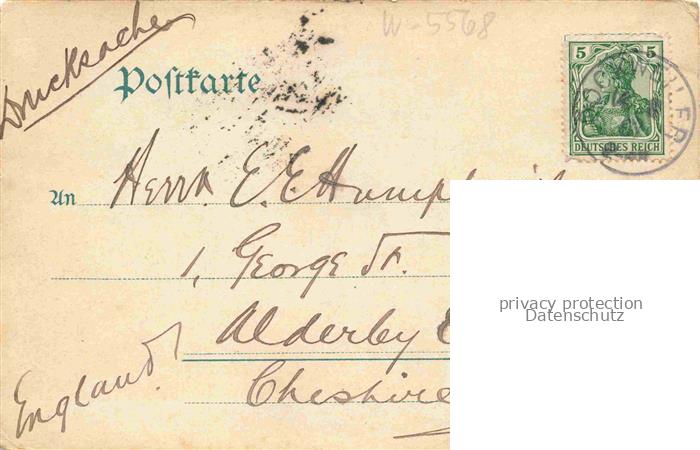 Drucksache
W-5568
Postkarte
5 5
DEUTSCHES REICH
An Herrn E. E.
1, George St.
Alderby
Cheshire
England
privacy protection
Datenschutz